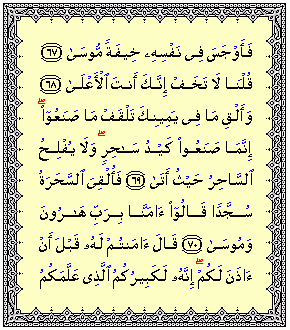 فَأَوْجَسَ فِى نَفْسِهِۦ خِيفَةً مُّوسَىٰ ﴿٦٧﴾
قُلْنَا لَا تَخَفْ إِنَّكَ أَنتَ ٱلْأَعْلَىٰ ﴿٦٨﴾
وَأَلْقِ مَا فِى يَمِينِكَ تَلْقَفْ مَا صَنَعُوٓا۟ ۖ
إِنَّمَا صَنَعُوا۟ كَيْدُ سَـٰحِرٍ ۖ وَلَا يُفْلِحُ
ٱلسَّاحِرُ حَيْثُ أَتَىٰ ﴿٦٩﴾ فَأُلْقِىَ ٱلسَّحَرَةُ
سُجَّدًا قَالُوٓا۟ ءَامَنَّا بِرَبِّ هَـٰرُونَ
وَمُوسَىٰ ﴿٧٠﴾ قَالَ ءَامَنتُمْ لَهُۥ قَبْلَ أَنْ
ءَاذَنَ لَكُمْ ۖ إِنَّهُۥ لَكَبِيرُكُمُ ٱلَّذِى عَلَّمَكُمُ